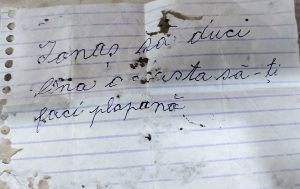 Ionaș să duci
lîna aiasta să-ți
faci plapană